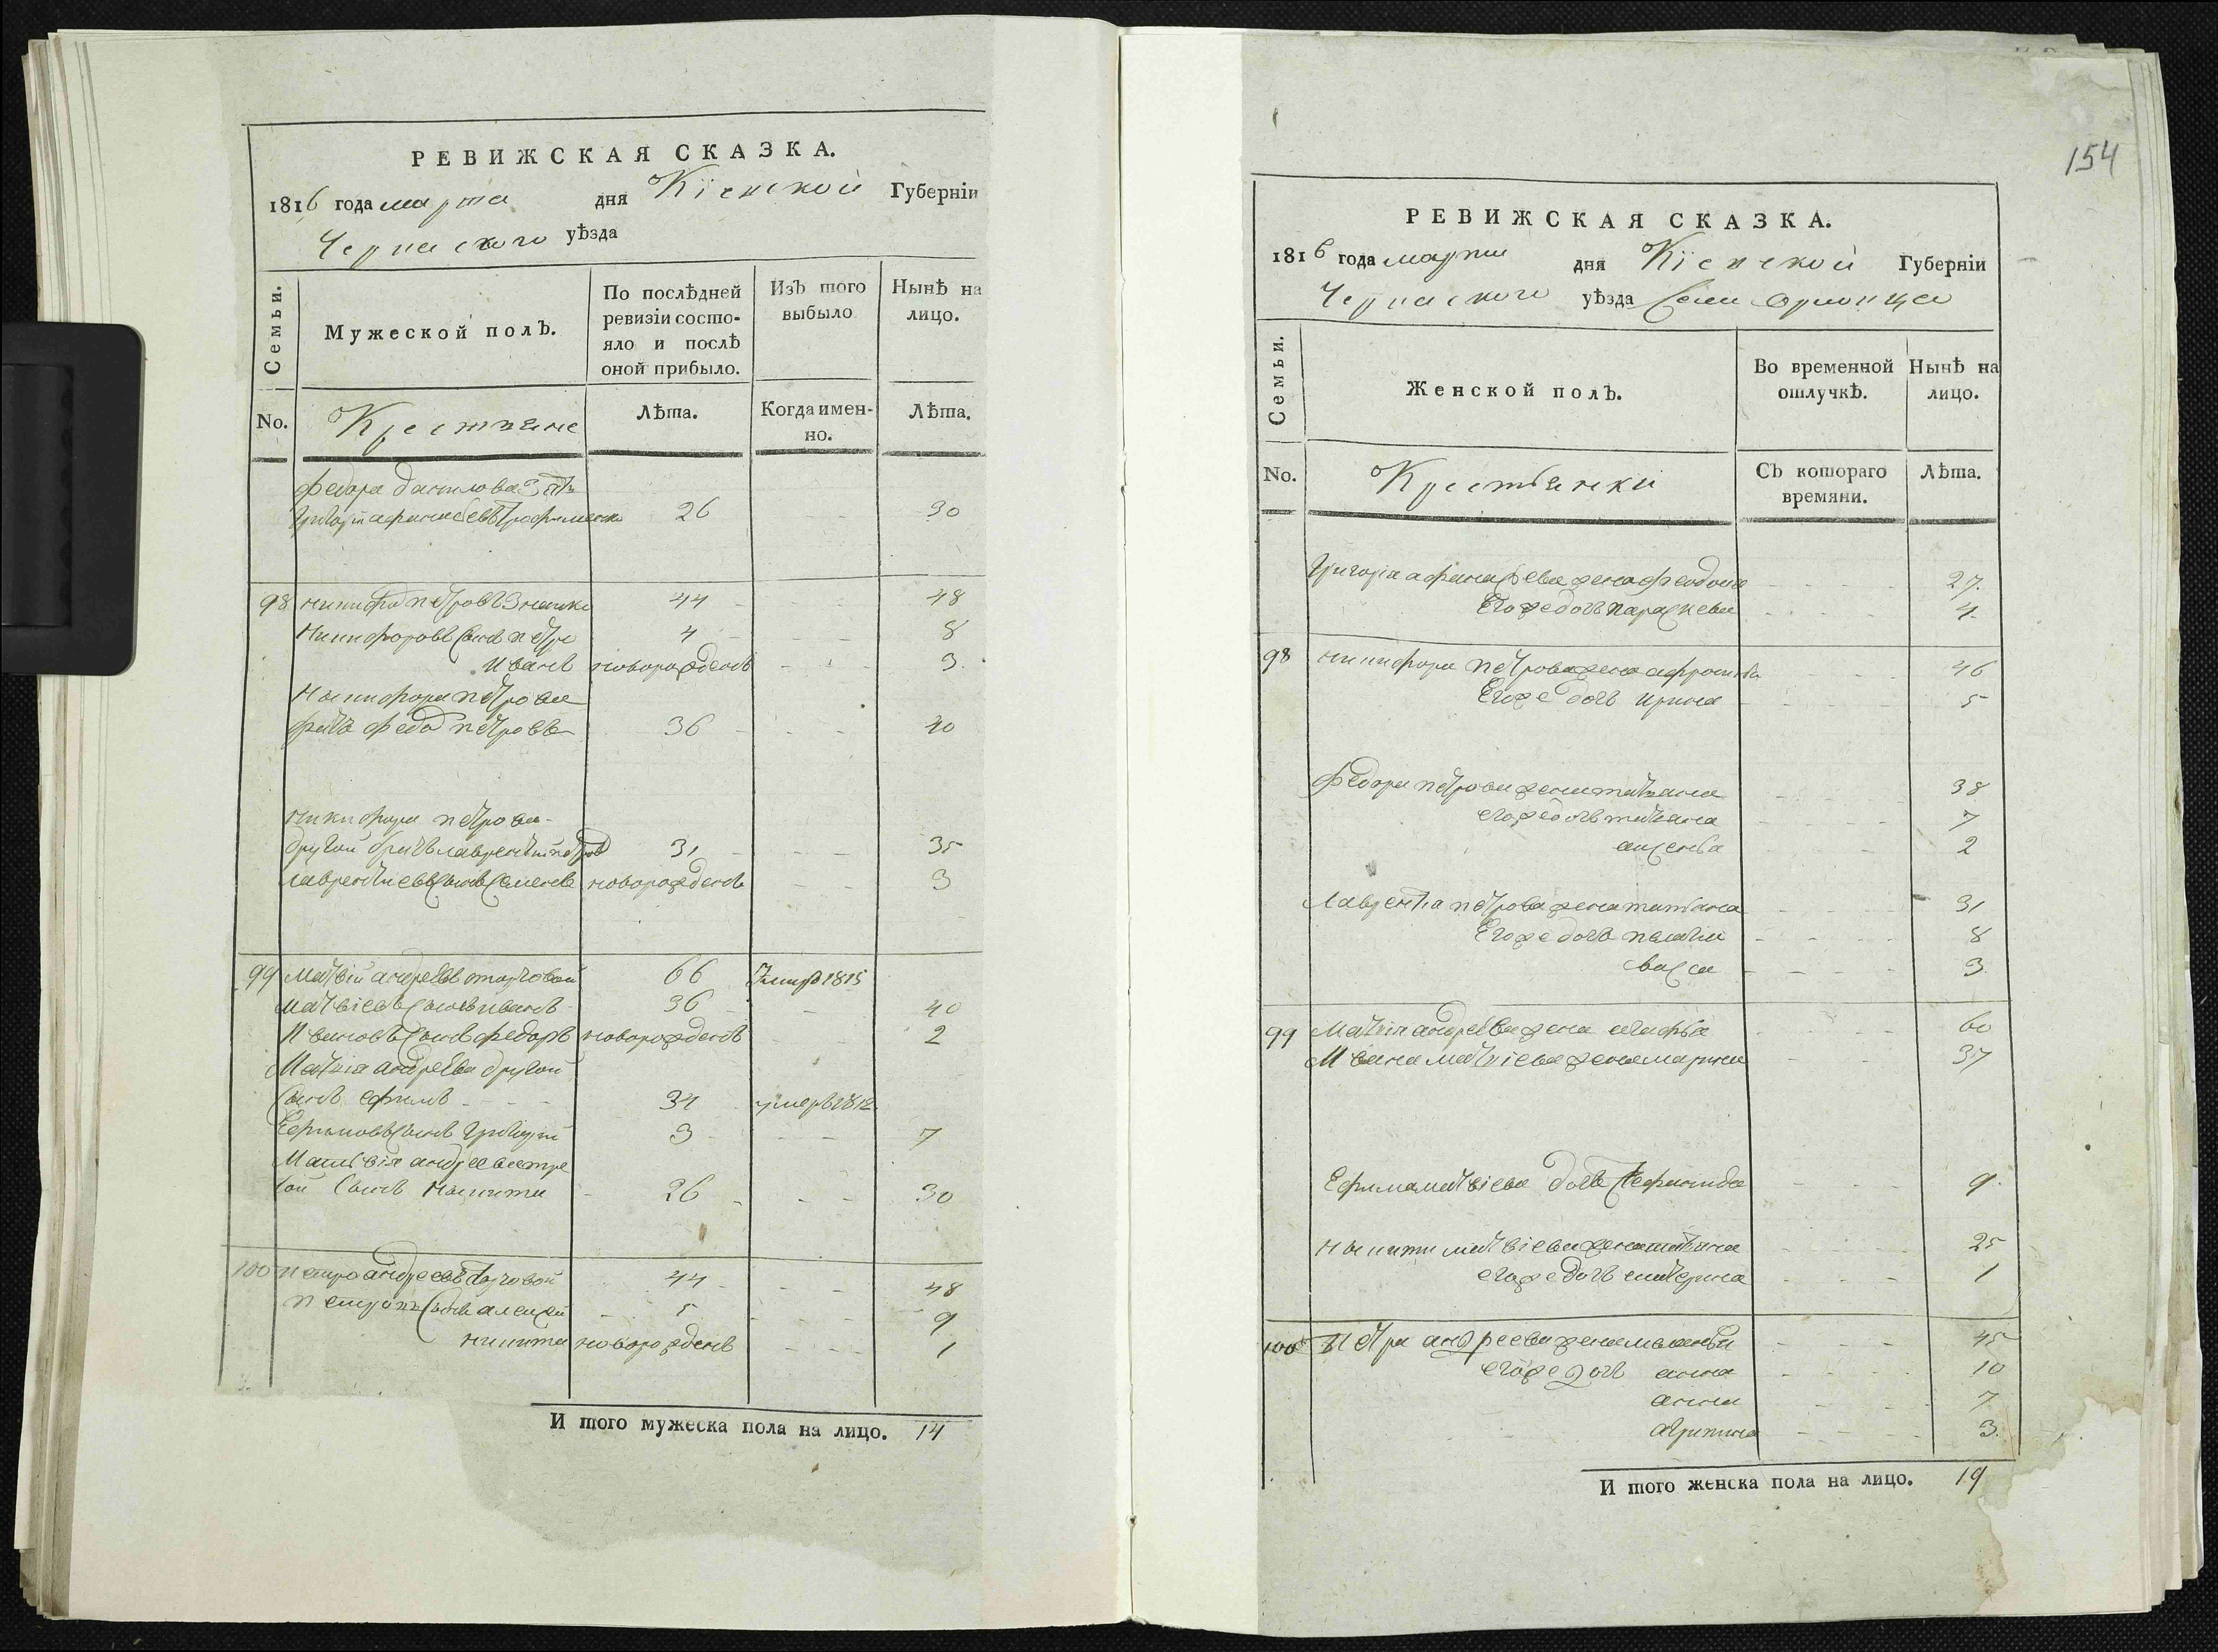 РЕВИЖСКАЯ СКАЗКА.
1816 года марта дня Кіевской Губерніи
Черкаского уѣзда
Семьи.
Мужеской полъ.
По послѣдней ревизіи состояло и послѣ оной прибыло.
Изъ того выбыло
Нынѣ на лицо.
No.
Крестьяне
Лѣта.
Когда именно.
Лѣта.
Федора данилова зять
Григорій афанасьевъ трофименко 26 30
98 никифоръ петровъ 44 48
Никифоровъ сынъ петро 4 8
Иванъ новорожденъ 3
Никифора петрова
братъ федоръ петровъ 36 40
никифора петрова
другой братъ лаврентій петровъ 31 35
лаврентіевъ сынъ семенъ новорожденъ 3
99 матвій андреевъ 66 умеръ 1815
матвіевъ сынъ иванъ 36 40
Ивановъ сынъ федоръ новорожденъ 2
Матвія андреева другой
сынъ ефимъ 34 умеръ 1812
Ефимовъ сынъ григорій 3 7
Матвія андреева тре
тій сынъ никита 26 30
100 петро андреевъ 44 48
петровъ сынъ алексѣй 5 9
никита новорожденъ 1
И того мужеска пола на лицо. 14
154
РЕВИЖСКАЯ СКАЗКА.
1816 года марта дня Кіевской Губерніи
Черкаского уѣзда Села орловца
Семьи.
Женской полъ.
Во временной отлучкѣ.
Нынѣ на лицо.
No.
Крестьянки
Съ котораго времяни.
Лѣта.
Григорія афанасьева жена феодосия 27
Егоже дочь параскева 4
98 никифора петрова жена 46
Егоже дочь ирина 5
федора петрова жена татьяна 38
егоже дочь татьяна 7
аксенья 2
Лаврентія петрова жена татьяна 31
Егоже дочь 8
васса 3
99 Матвія андреева жена агафья 60
Ивана матвіева жена марина 37
Ефима матвіева дочь 9
никиты матвіева жена татьяна 25
егоже дочь катерина 1
100 Петра андреева жена 45
егоже дочь анна 10
анна 7
агрипина 3
И того женска пола на лицо. 19